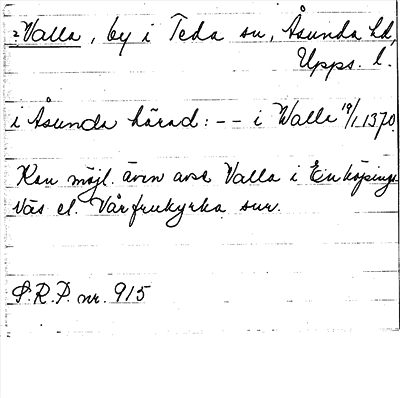 ?Valla, by i Teda sn, Åsunda hd,
Upps. l.
i Åsunda härad: -- i Walla 19/1 1370.
Kan möjl. även avse Valla i Enköpings-
näs el. Vårfrukyrka snr.
S.R.P. nr. 915